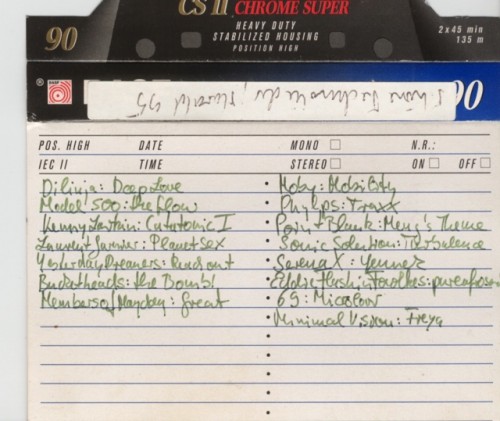 CS II CHROME SUPER
90
HEAVY DUTY
STABILIZED HOUSING
POSITION HIGH
2 x 45 min
135 m
BASF
90
POS. HIGH DATE MONO N.R.:
IEC II TIME STEREO ON OFF
Dilinia: Deep Love
Model 500: the flow
Kenny Larkin: Catatonic I
Laurent Garnier: Planet Sex
Yesterday Dreamers: Reach out
Bucketheads: the Bomb!
Members of Mayday: great
Moby: Mobility
Phylyps: Traxx
Point Blank: Meng's Theme
Sonic Solution: Turbulence
Serena X:
Eddie Flashin Fowlkes:
69: Microlovr
Minimal Vision: Freya